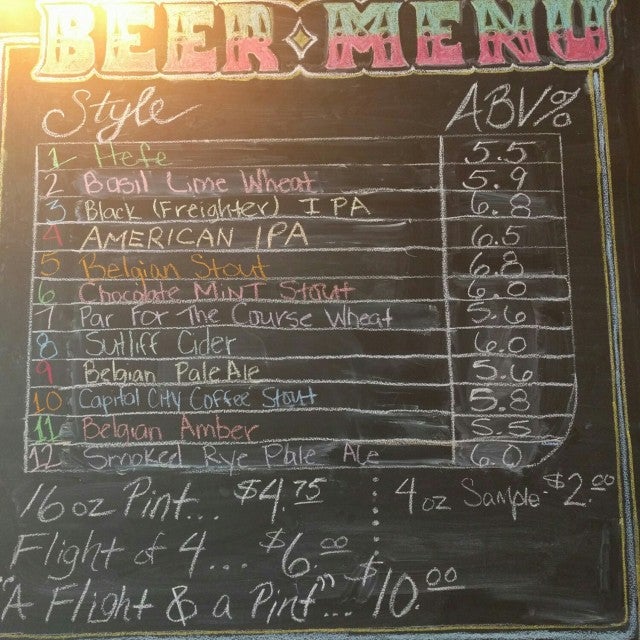 BEER MENU
Style ABV%
1 Hefe 5.5
2 Basil Lime Wheat 5.9
3 Black (Freighter) IPA 6.8
4 AMERICAN IPA 6.5
5 Belgian Stout 6.8
6 Chocolate MiNT Stout 6.0
7 Par For The Course Wheat 5.6
8 Sutliff Cider 6.0
9 Belgian Pale Ale 5.6
10 Capital City Coffee Stout 5.8
11 Belgian Amber 5.5
12 Smoked Rye Pale Ale 6.0
16 oz Pint... $4.75 4 oz Sample - $2.00
Flight of 4... $6.00
"A Flight & a Pint"... $10.00